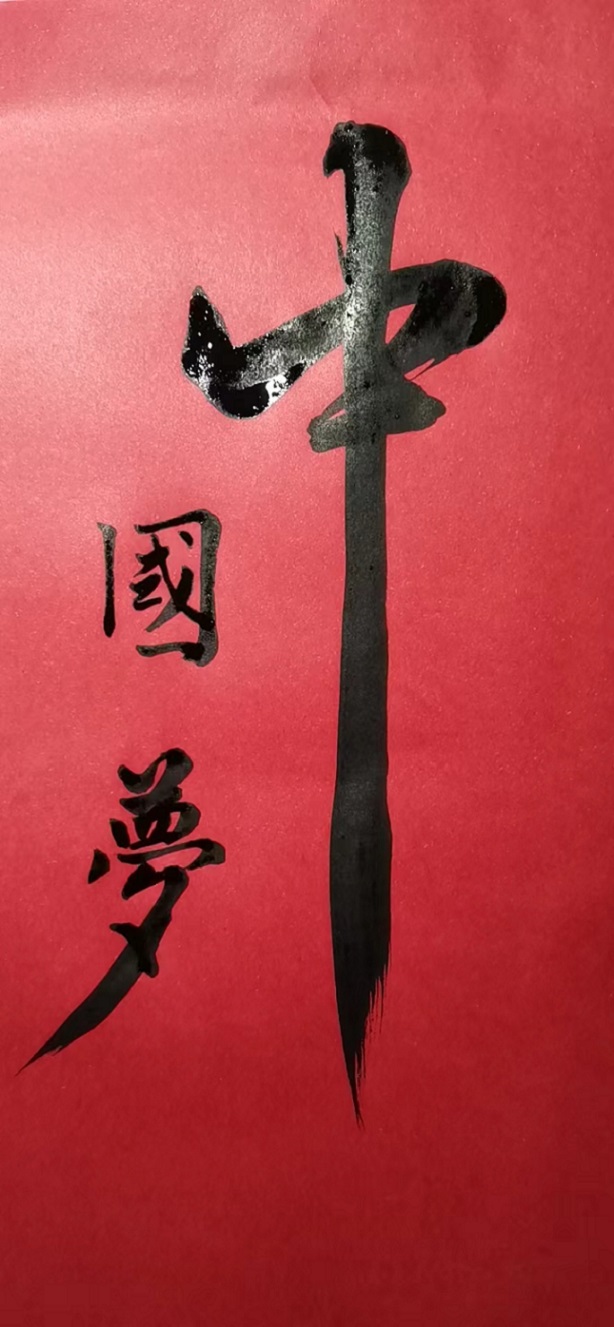 中
國夢